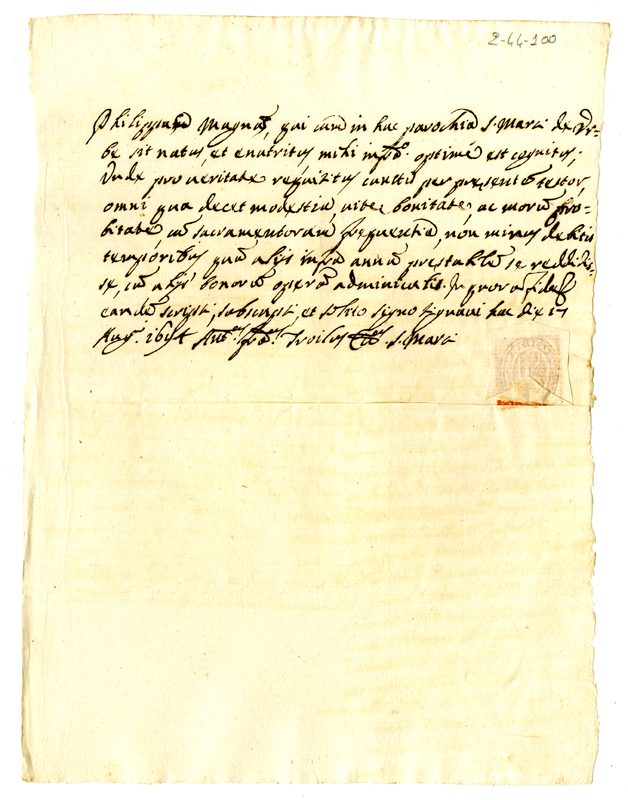 2-44-100
Philippum Magnū, qui cum in hac parochia S. Marci de Vr-
be sit natus, et enutritus mihi infro. optime est cognitus;
Vnde pro veritate requisitus cunctis per presentes testor,
omni qua decet modestia, vite bonitate, ac morū pro-
bitate, cū sacramentorum frequentia, non minus debitis
temporibus quā alijs infra annū prestabilē se reddidis-
se, cū alijs bonorū operū adminiculis. In quorū fidē
eandē scripsi, subscripsi et solito signo signavi hac die 17
Aug. 1654 Troilus S. Marci